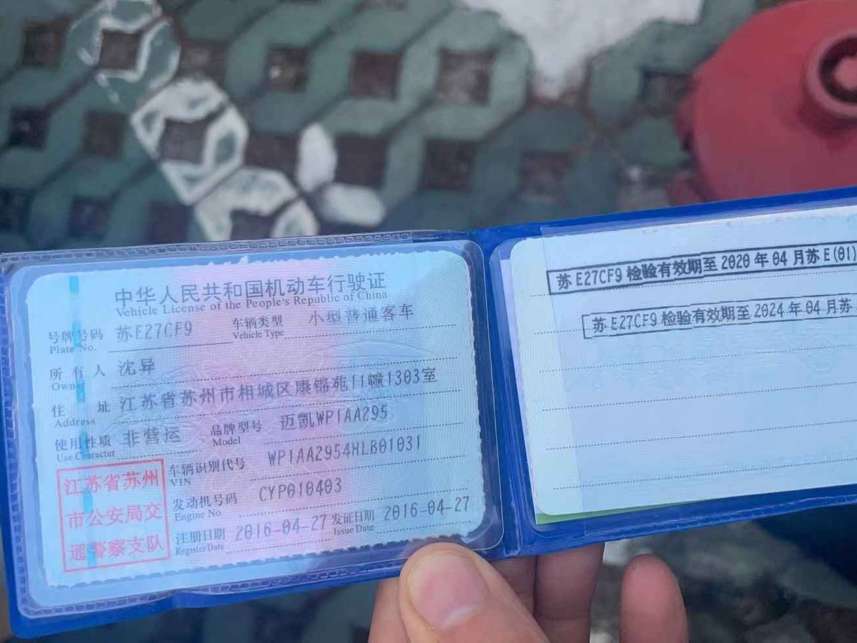 中华人民共和国机动车行驶证
Vehicle License of the People's Republic of China
号牌号码 苏E27CF9 车辆类型 小型普通客车
Plate No. Vehicle Type
所有人 沈异
Owner
住址 江苏省苏州市相城区康锦苑11幢1303室
Address
使用性质 非营运 品牌型号 迈凯WP1AA295
Use Character Model
车辆识别代号 WP1AA2954HLB01031
VIN
发动机号码 CYP010403
Engine No.
注册日期 2016-04-27 发证日期 2016-04-27
Register Date Issue Date
江苏省苏州
市公安局交
通警察支队
苏E27CF9检验有效期至2020年04月苏E(01)
苏E27CF9检验有效期至2024年04月苏